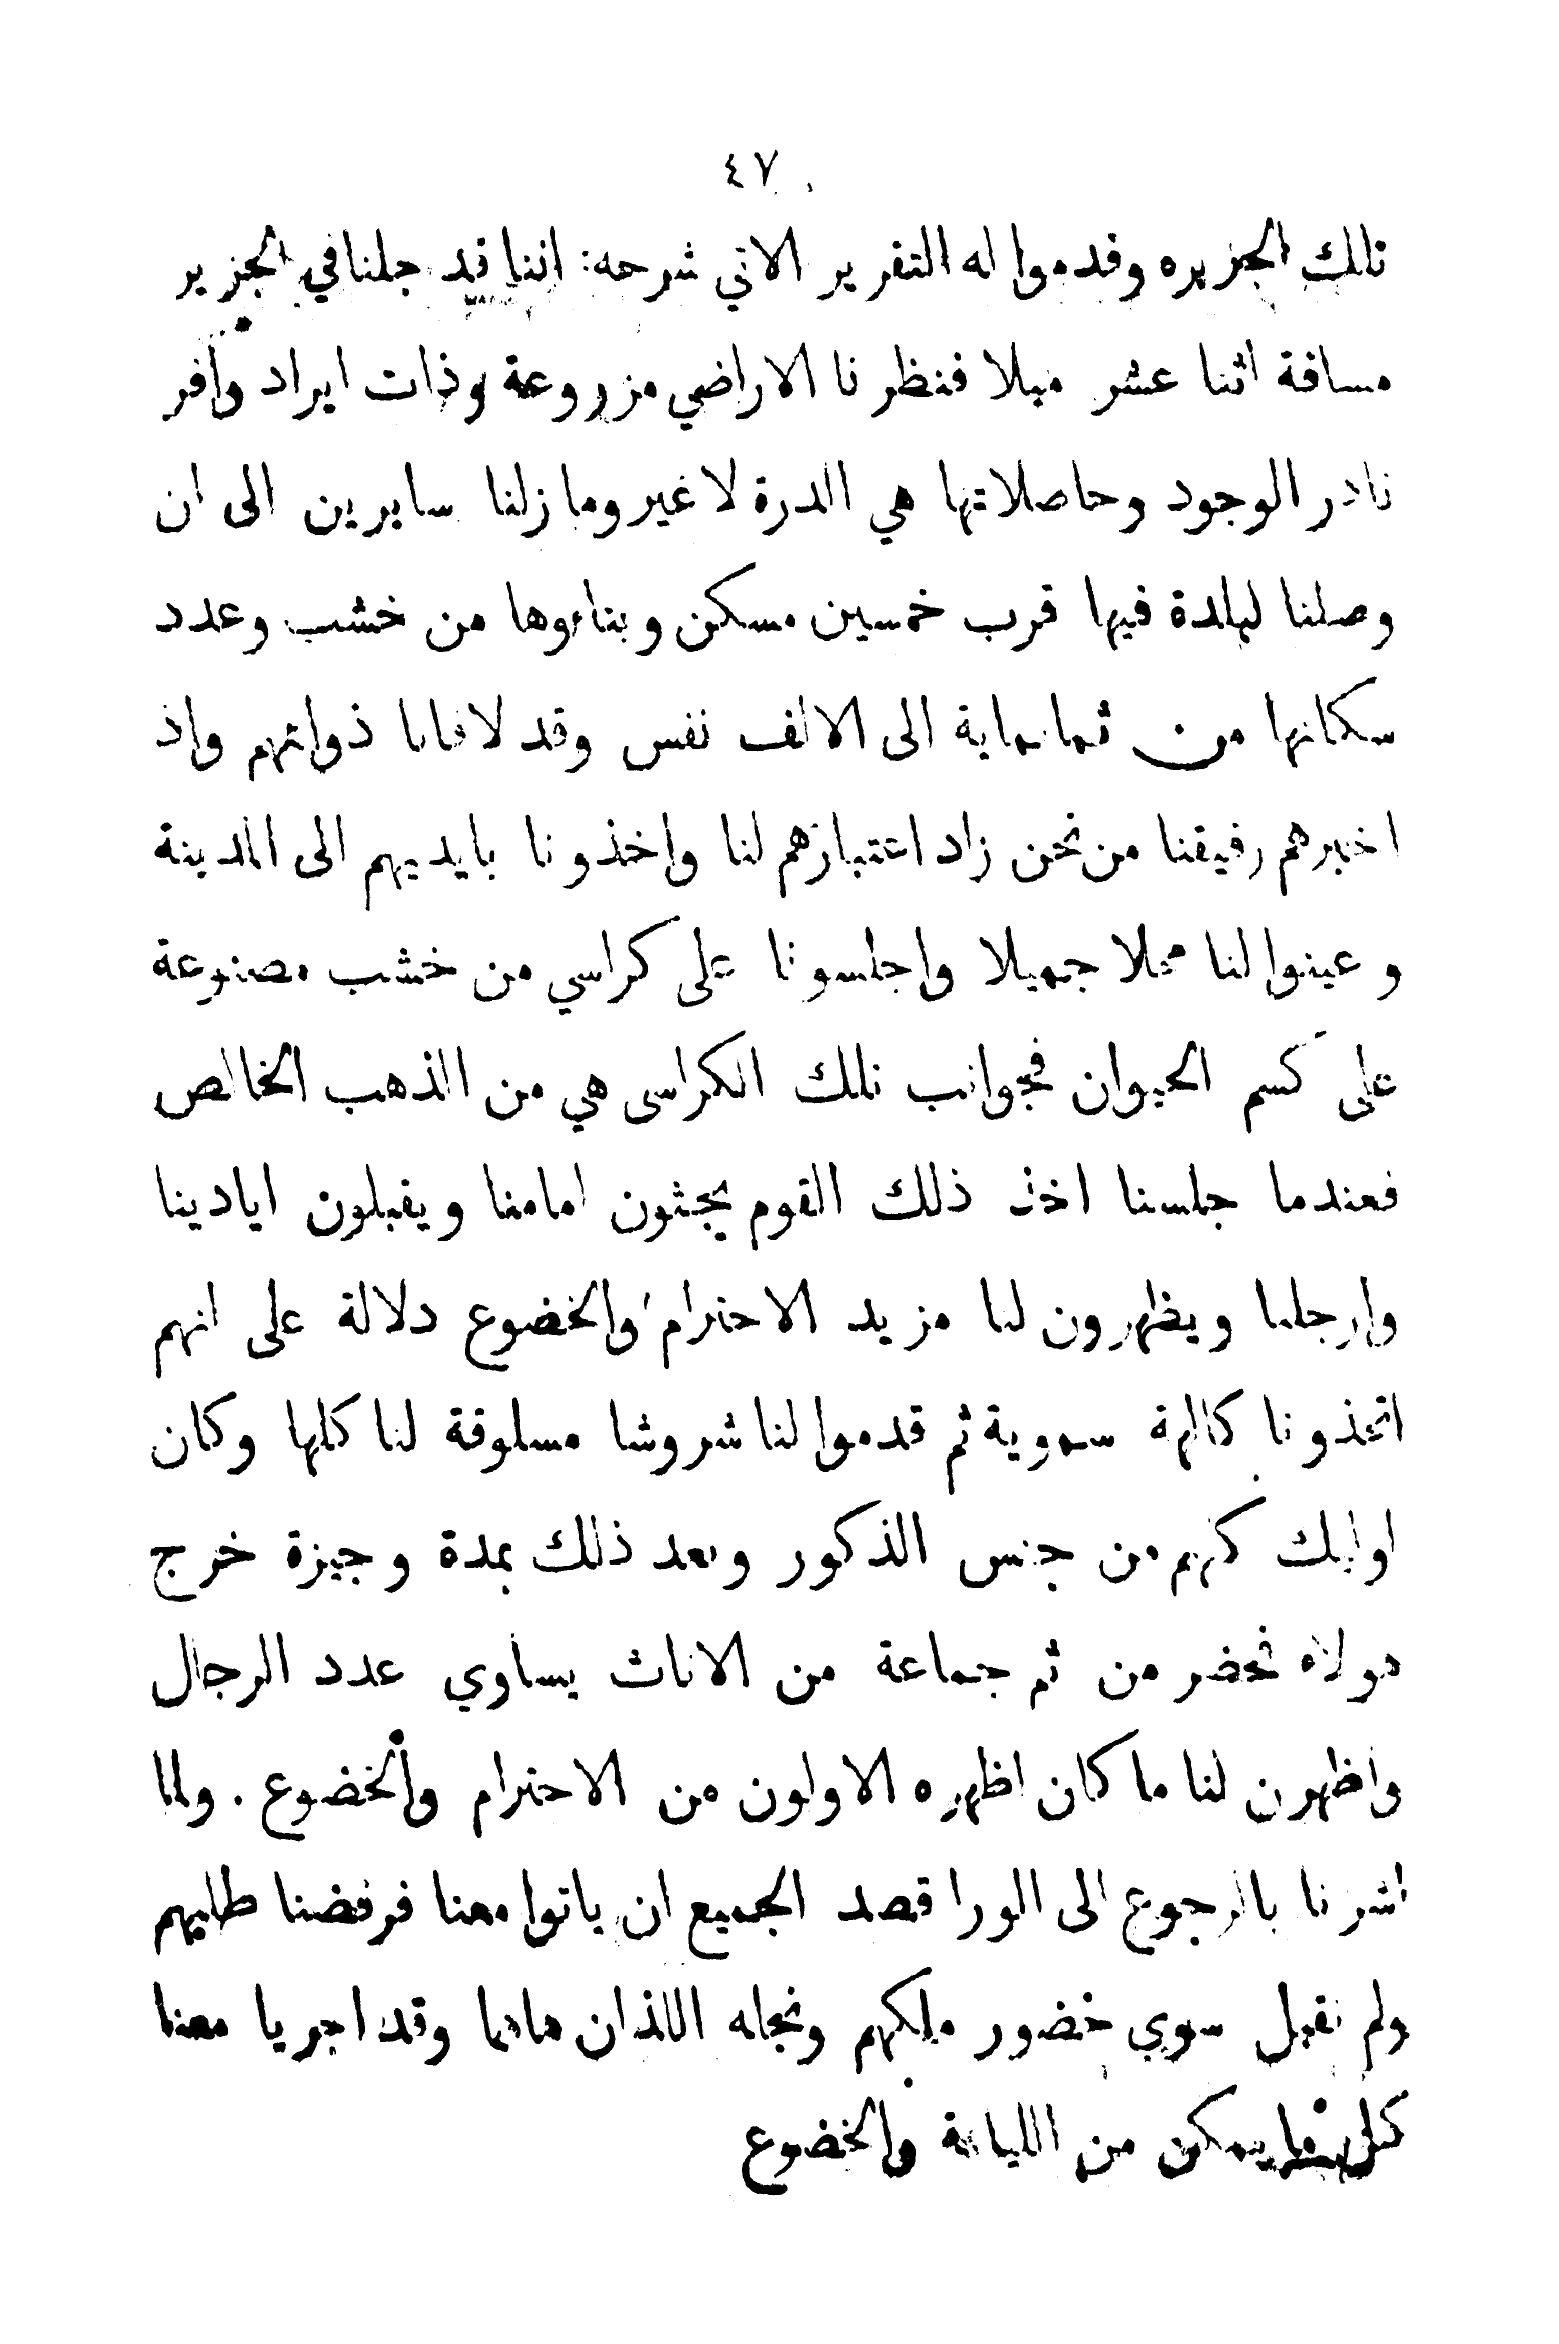 ٤٧
تلك الجزيره وقدموا له التقرير الاتي شرحه: اننا قد جلنا في الجزير
مسافة اثنا عشر ميلا فنظرنا الاراضي مزروعة وذات ايراد وافر
نادر الوجود وحاصلاتها هي الدرة لا غير وما زلنا سايرين الى ان
وصلنا لبلدة فيها قرب خمسين مسكن وبناءوها من خشب وعدد
سكانها من ثمانماية الى الالف نفس وقد لاقانا ذواتهم واذ
اخبرهم رفيقنا من نحن زاد اعتبارهم لنا واخذونا بايديهم الى المدينة
وعينوا لنا محلا جميلا واجلسونا على كراسي من خشب مصنوعة
على كسم الحيوان فجوانب تلك الكراسى هي من الذهب الخالص
فعندما جلسنا اخذ ذلك القوم يجثون امامنا ويقبلون ايادينا
وارجلنا ويظهرون لنا مزيد الاحترام والخضوع دلالة على انهم
اتخذونا كالهة سموية ثم قدموا لنا شروشا مسلوقة لنا كلها وكان
اوليك كلهم من جنس الذكور وبعد ذلك بمدة وجيزة خرج
هولاه فحضر من ثم جماعة من الاناث يساوي عدد الرجال
واظهرن لنا ما كان اظهره الاولون من الاحترام والخضوع . ولما
اشرنا بالرجوع الى الورا قصد الجميع ان ياتوا معنا فرفضنا طلبهم
ولم نقبل سوي حضور ملكهم ونجله اللذان هاهما وقد اجريا معنا
كل ما يمكن من اللياقة والخضوع